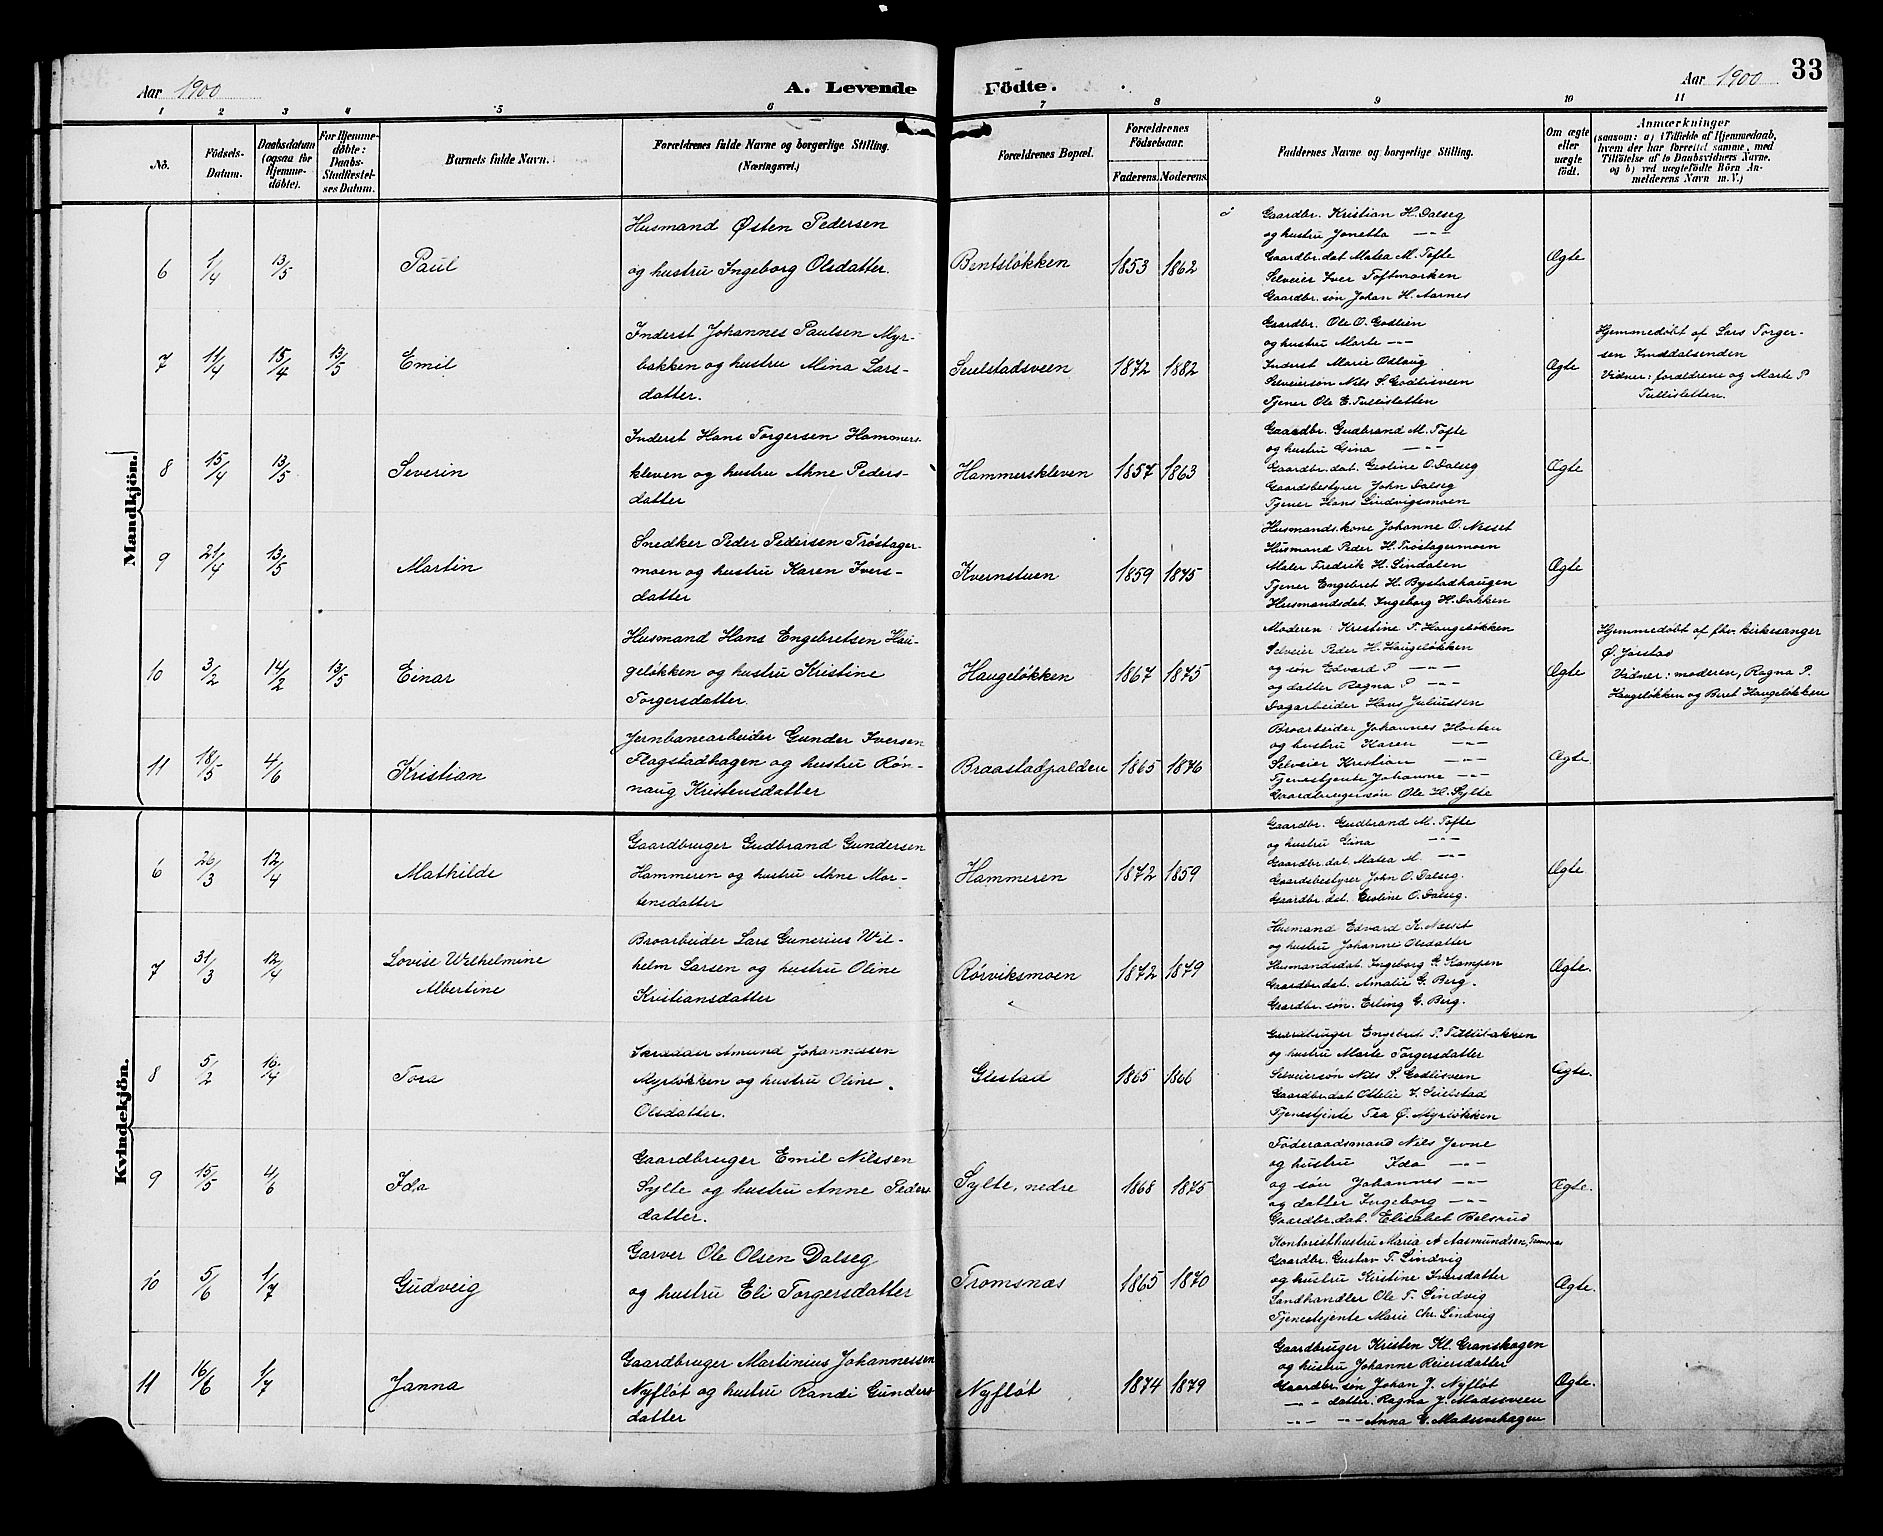 Aar 1900
A. Levende Födte.
Aar 1900
33
1 2 3 4 5 6 7 8 9 10 11
No.
Födsels-Datum.
Daabsdatum (ogsaa for Hjemme-döbte).
For Hjemme-döbte: Daabs-Stadfestel-ses Datum.
Barnets fulde Navn.
Forældrenes fulde Navne og borgerlige Stilling.
(Næringsvei.)
Forældrenes Bopæl.
Forældrenes Födselsaar.
Faderens. Moderens.
Faddernes Navne og borgerlige Stilling.
Om ægte eller uægte födt.
Anmærkninger
(saasom: a) i Tilfælde af Hjemmedaab, hvem der har forrettet samme, med Tilföielse af to Daabsvidners Navne, og b) ved uægtefödte Börn An-melderens Navn m. V.)
Mandkjön.
6 1/4 13/5 Paul
Husmand Østen Pedersen
og hustru Ingeborg Olsdatter.
Bentsløkken 1853 1862
Gaardbr. Kristian H. Dalseg
og hustru Jonetta -"-
Gaardbr.dat. Matea M. Tofte
Selveier Iver Toftmarken
Gaardbr. søn Johan H. Aarnes
Ægte
7 11/4 15/4 13/5 Emil
Inderst Johannes Paulsen Myr-
bakken og hustru Mina Lars-
datter.
Seielstadsveen 1872 1882
Gaardbr. Ole O. Godlien
og hustru Marte -"-
Inderst Marie Oslaug
Selveiersøn Nils S. Godlisveen
Tjener Ole E. Tullisletten
Ægte
Hjemmedøbt af Lars Torger-
sen
Vidner: forældrene og Marte P
Tullisletten.
8 15/4 13/5 Severin
Inderst Hans Torgersen Hammers-
kleven og hustru Ahne Peders-
datter
Hammerskleven 1857 1863
Gaardbr. Gudbrand M. Tofte
og hustru Gina -"-
Gaardbr.dat. Eroline O. Dalseg
Gaardsbestyrer John Dalseg
Tjener Hans Lindvigsmoen
Ægte
9 21/4 13/5 Martin
Snedker Peder Pedersen Trøstager-
moen og hustru Karen Ivers-
datter
Kvernstuen 1859 1875
Husmands.kone Johanne O. Nesset
Husmand Peder H. Trøstagermoen
Maler Fredrik H. Lindalen
Tjener Engebret H. Bystadhaugen
Husmandsdat. Ingeborg H. Bakken
Ægte
10 3/2 14/2 13/5 Einar
Husmand Hans Engebretsen Hau-
geløkken og hustru Kristine
Torgersdatter.
Haugeløkken 1867 1875
Moderen: Kristine T. Haugeløkken
Selveier Peder H. Haugeløkken
og søn Edvard P -"-
og datter Ragna P -"-
Dagarbeider Hans Juliussen
Ægte
Hjemmedøbt af fhv. kirkesanger
Ø. Jorstad
Vidner: moderen, Ragna P.
Haugeløkken og Beret Haugeløkken
11 18/5 4/6 Kristian
Jernbanearbeider Gunder Iversen
Flagstadhagen og hustru Røn-
naug Kristensdatter
Braastadpladen 1865 1876
Broarbeider Johannes Horten
og hustru Karen -"-
Selveier Kristian -"-
Tjenestjente Johanne -"-
Gaardbrugersøn Ole H. Sylte
Ægte
Kvindekjön.
6 26/3 12/4 Mathilde
Gaardbruger Gudbrand Gundersen
Hammeren og hustru Ahne Mor-
tensdatter
Hammeren 1872 1859
Gaardbr. Gudbrand M. Tofte
og hustru Gina -"-
Gaardbr.dat. Matea M. -"-
Gaardsbestyrer John O. Dalseg.
Gaardbr.dat. Eroline O. Dalseg.
Ægte.
7 31/3 12/4 Lovise Wilhelmine
Albertine
Broarbeider Lars Gunerius Wil-
helm Larsen og hustru Oline
Kristiansdatter
Rörviksmoen 1872 1879
Husmand Edvard K. Nesset
og hustru Johanne Olsdatter
Husmandsdat. Ingeborg G. Kampen
Gaardbr.dat. Amalie G. Berg.
Gaardbr. søn. Erling G. Berg.
Ægte.
8 5/2 16/4 Tora
Skrædder Amund Johannessen
Myrløkken og hustru Oline
Olsdatter.
Glestad 1865 1866
Gaardbruger Engebret P. Tullibakken
og hustru Marte Torgersdatter
Selveiersøn Nils S. Godlisveen
Gaardbr.dat Ottelie V. Seielstad
Tjenestjente Tea Ø. Myrløkken
Ægte.
9 15/5 4/6 Ida
Gaardbruger Emil Nilssen
Sylte og hustru Anne Peders
datter.
Sylte, nedre 1868 1875
Føderaadsmand Nils Jevne
og hustru Ida -"-
og søn Johannes -"-
og datter Ingeborg -"-
Gaardbr.dat. Elisabet Belsrud
Ægte.
10 5/6 1/7 Gudveig
Garver Ole Olsen Dalseg
og hustru Eli Torgersdatter
Tromsnæs 1865 1870
Kontoristhustru Maria A Aasmundsen,
Gaardbr. Gustav T. Lindvig
og hustru Kristine Iversdatter
Landhandler Ole T. Lindvig
Tjenestejente Marie Chr. Lindvig
Ægte.
11 16/6 1/7 Janna
Gaardbruger Martinius Johannessen
Nyfløt og hustru Randi Gunders
datter
Nyfløt 1874 1879
Gaardbruger Kristen Kl. Granskogen
og hustru Johanne Reiersdatter
Gaardbr. søn Johan J. Nyfløt
-"- datter Ragna J. Madssveen
-"- -"- Anna G. Madsvehagen
Ægte.